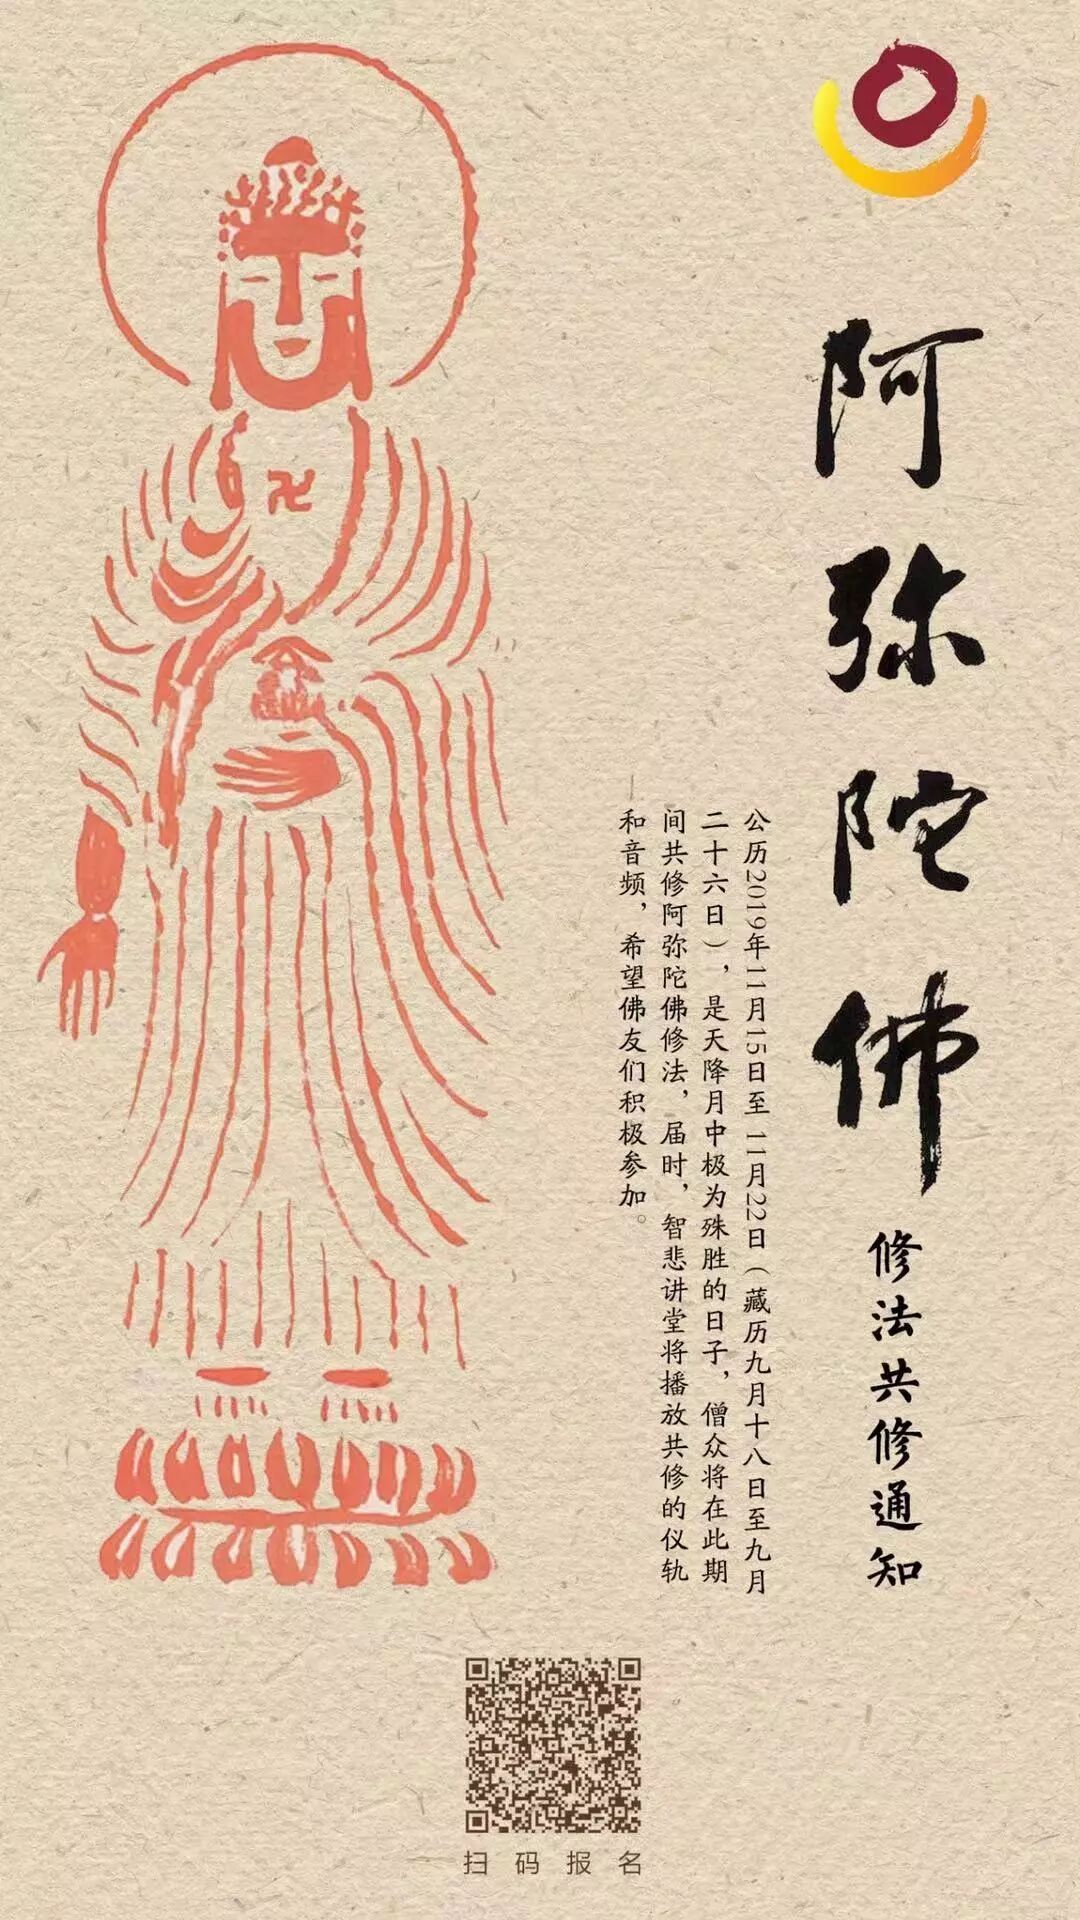 阿弥陀佛
修法共修通知
公历2019年11月15日至 11月22日（藏历九月十八日至九月
二十六日），是天降月中极为殊胜的日子，僧众将在此期
间共修阿弥陀佛修法，届时，智悲讲堂将播放共修的仪轨
和音频，希望佛友们积极参加。
扫码报名